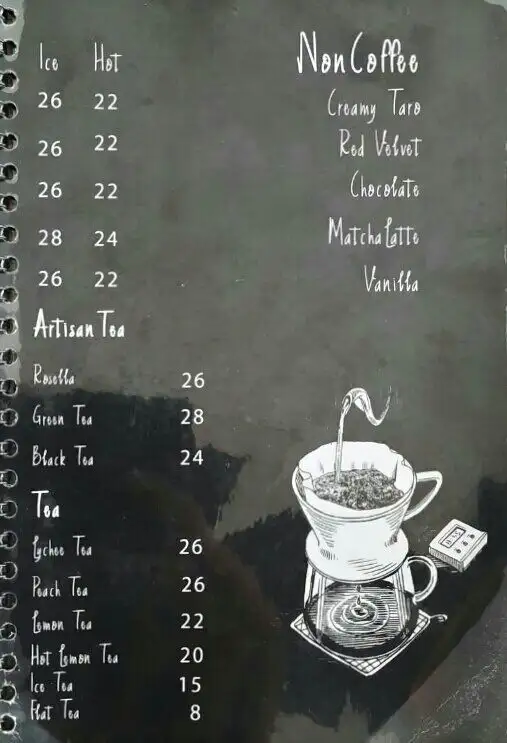 Ice Hot Non Coffee
26 22 Creamy Taro
26 22 Red Velvet
26 22 Chocolate
28 24 Matcha Latte
26 22 Vanilla
Artisan Tea
Rosella 26
Green Tea 28
Black Tea 24
Tea
Lychee Tea 26
Peach Tea 26
Lemon Tea 22
Hot Lemon Tea 20
Ice Tea 15
Tea 8